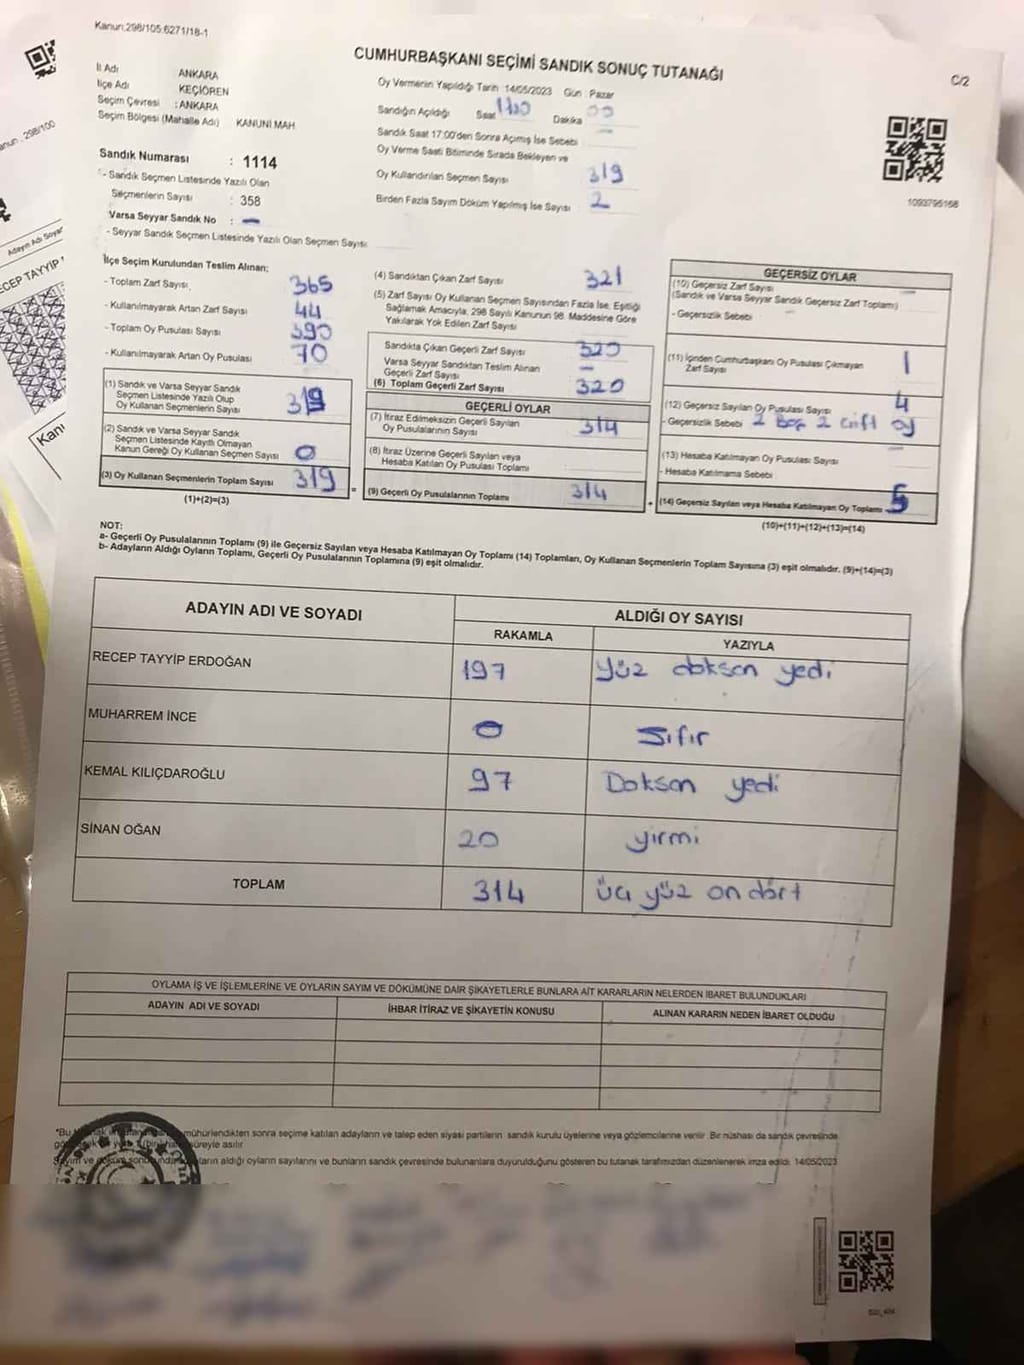 Kanun:298/105:6271/18-1
CUMHURBAŞKANI SEÇİMİ SANDIK SONUÇ TUTANAĞI
C/2
İl Adı ANKARA
İlçe Adı KEÇİÖREN
Seçim Çevresi : ANKARA
Seçim Bölgesi (Mahalle Adı) KANUNİ MAH
Sandık Numarası : 1114
- Sandık Seçmen Listesinde Yazılı Olan
Seçmenlerin Sayısı : 358
Varsa Seyyar Sandık No : -
- Seyyar Sandık Seçmen Listesinde Yazılı Olan Seçmen Sayısı:
Oy Vermenin Yapıldığı Tarih 14/05/2023 Gün : Pazar
Sandığın Açıldığı Saat Dakika
Sandık Saat 17:00'den Sonra Açımış İse Sebebi
Oy Verme Saati Bitiminde Sırada Bekleyen ve
Oy Kullandırılan Seçmen Sayısı 319
Birden Fazla Sayım Döküm Yapılmış İse Sayısı 2
1093795168
İlçe Seçim Kurulundan Teslim Alınan;
- Toplam Zarf Sayısı, 365
- Kullanılmayarak Artan Zarf Sayısı 44
- Toplam Oy Pusulası Sayısı 390
- Kullanılmayarak Artan Oy Pusulası 70
(1) Sandık ve Varsa Seyyar Sandık
Seçmen Listesinde Yazılı Olup
Oy Kullanan Seçmenlerin Sayısı 319
(2) Sandık ve Varsa Seyyar Sandık
Seçmen Listesinde Kayıtlı Olmayan
Kanun Gereği Oy Kullanan Seçmen Sayısı 0
(3) Oy Kullanan Seçmenlerin Toplam Sayısı 319
(1)+(2)=(3)
(4) Sandıktan Çıkan Zarf Sayısı 321
(5) Zarf Sayısı Oy Kullanan Seçmen Sayısından Fazla İse, Eşitliği
Sağlamak Amacıyla, 298 Sayılı Kanunun 98. Maddesine Göre
Yakılarak Yok Edilen Zarf Sayısı
Sandıkta Çıkan Geçerli Zarf Sayısı 320
Varsa Seyyar Sandıktan Teslim Alınan
Geçerli Zarf Sayısı -
(6) Toplam Geçerli Zarf Sayısı 320
GEÇERLİ OYLAR
(7) İtiraz Edilmeksizin Geçerli Sayılan
Oy Pusulalarının Sayısı 314
(8) İtiraz Üzerine Geçerli Sayılan veya
Hesaba Katılan Oy Pusulası Toplamı
= (9) Geçerli Oy Pusulalarının Toplamı 314 +
GEÇERSİZ OYLAR
(10) Geçersiz Zarf Sayısı
(Sandık ve Varsa Seyyar Sandık Geçersiz Zarf Toplamı)
- Geçersizlik Sebebi
(11) İçinden Cumhurbaşkanı Oy Pusulası Çıkmayan
Zarf Sayısı 1
(12) Geçersiz Sayılan Oy Pusulası Sayısı 4
- Geçersizlik Sebebi 2 Boş 2 Çift oy
(13) Hesaba Katılmayan Oy Pusulası Sayısı
- Hesaba Katılmama Sebebi
(14) Geçersiz Sayılan veya Hesaba Katılmayan Oy Toplamı 5
(10)+(11)+(12)+(13)=(14)
NOT:
a- Geçerli Oy Pusulalarının Toplamı (9) ile Geçersiz Sayılan veya Hesaba Katılmayan Oy Toplamı (14) Toplamları, Oy Kullanan Seçmenlerin Toplam Sayısına (3) eşit olmalıdır. (9)+(14)=(3)
b- Adayların Aldığı Oyların Toplamı, Geçerli Oy Pusulalarının Toplamına (9) eşit olmalıdır.
ADAYIN ADI VE SOYADI ALDIĞI OY SAYISI
RAKAMLA YAZIYLA
RECEP TAYYİP ERDOĞAN 197 yüz doksan yedi
MUHARREM İNCE 0 Sıfır
KEMAL KILIÇDAROĞLU 97 Doksan yedi
SİNAN OĞAN 20 yirmi
TOPLAM 314 üç yüz on dört
OYLAMA İŞ VE İŞLEMLERİNE VE OYLARIN SAYIM VE DÖKÜMÜNE DAİR ŞİKAYETLERLE BUNLARA AİT KARARLARIN NELERDEN İBARET BULUNDUKLARI
ADAYIN ADI VE SOYADI İHBAR İTİRAZ VE ŞİKAYETİN KONUSU ALINAN KARARIN NEDEN İBARET OLDUĞU
mühürlendikten sonra seçime katılan adayların ve talep eden siyasi partilerin sandık kurulu üyelerine veya gözlemcilerine verilir. Bir nüshası da sandık çevresinde
süreyle asılır
Sayım ve döküm aldığı oyların sayılarını ve bunların sandık çevresinde bulunanlara duyurulduğunu gösteren bu tutanak tarafımızdan düzenlenerek imza edildi. 14/05/2023